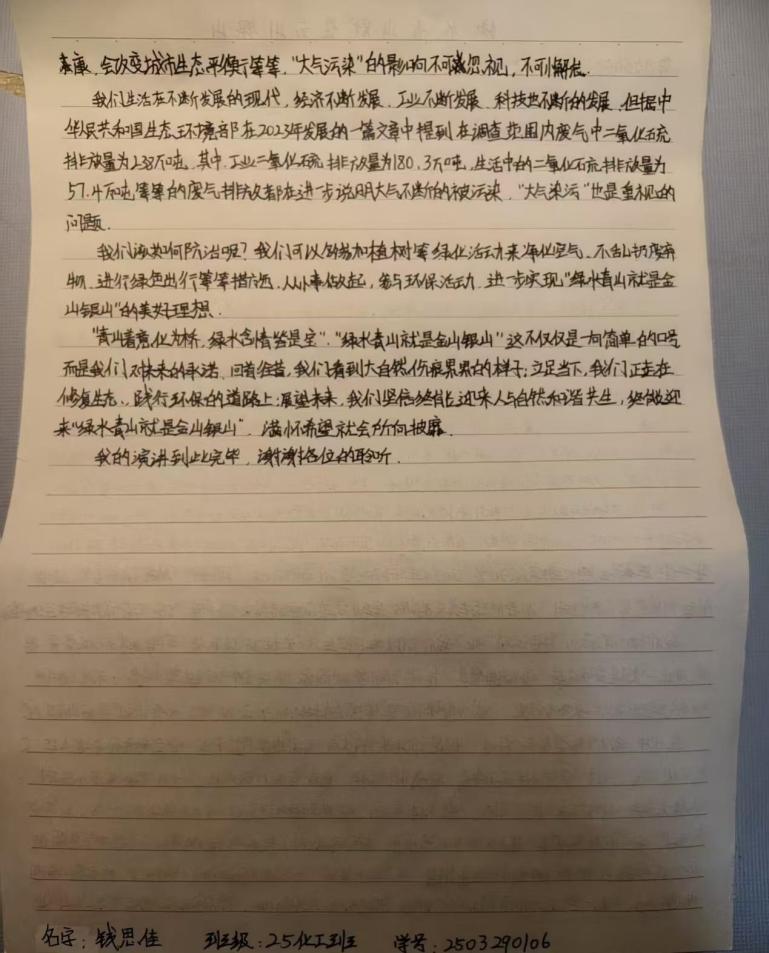 健康,会改变城市生态平衡等等,"大气污染"的影响不可忽视,不可小懈怠.
我们生活在不断发展的现代,经济不断发展,工业不断发展,科技也不断的发展,但据中
华人民共和国生态环境部在2023年发展的一篇文章中提到在调查范围内废气中二氧化硫
排放量为238万吨,其中,工业二氧化硫排放量为180.3万吨,生活中的二氧化硫排放量为
57.4万吨等等的废气排放都在进一步说明大气不断的被污染,"大气染污"也是重视的
问题.
我们该如何防治呢?我们可以参加植树等绿化活动来净化空气,不乱扔废弃
物,进行绿色出行等等措施,从小事做起,参与环保活动,进一步实现"绿水青山就是金
山银山"的美好理想.
"青山着意化为桥,绿水含情皆是宝","绿水青山就是金山银山"这不仅仅是一句简单的口号
而是我们对未来的承诺,回首往昔,我们看到大自然伤痕累累的样子;立足当下,我们正走在
修复生态、践行环保的道路上;展望未来,我们坚信终能迎来人与自然和谐共生,终能迎
来"绿水青山就是金山银山",满怀希望就会所向披靡.
我的演讲到此完毕,谢谢各位的聆听.
名字:钱思佳 班级:25化工班 学号:2503290106